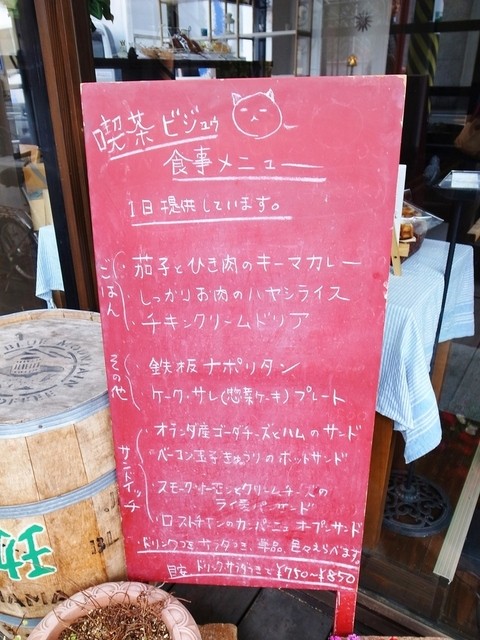 喫茶ビジュゥ
食事メニュー
1日提供しています。
ごはん
・茄子とひき肉のキーマカレー
・しっかりお肉のハヤシライス
・チキンクリームドリア
その他
・鉄板ナポリタン
・ケーク・サレ(惣菜ケーキ)プレート
サンドイッチ
・オランダ産ゴーダチーズとハムのサンド
・ベーコン玉子きゅうりのホットサンド
・スモークサーモンとクリームチーズの
ライ麦パンサンド
・ローストチキンのカンパーニュオープンサンド
ドリンクつき サラダつき 単品 色々えらべます。
ドリンクサラダつきで¥750〜¥850